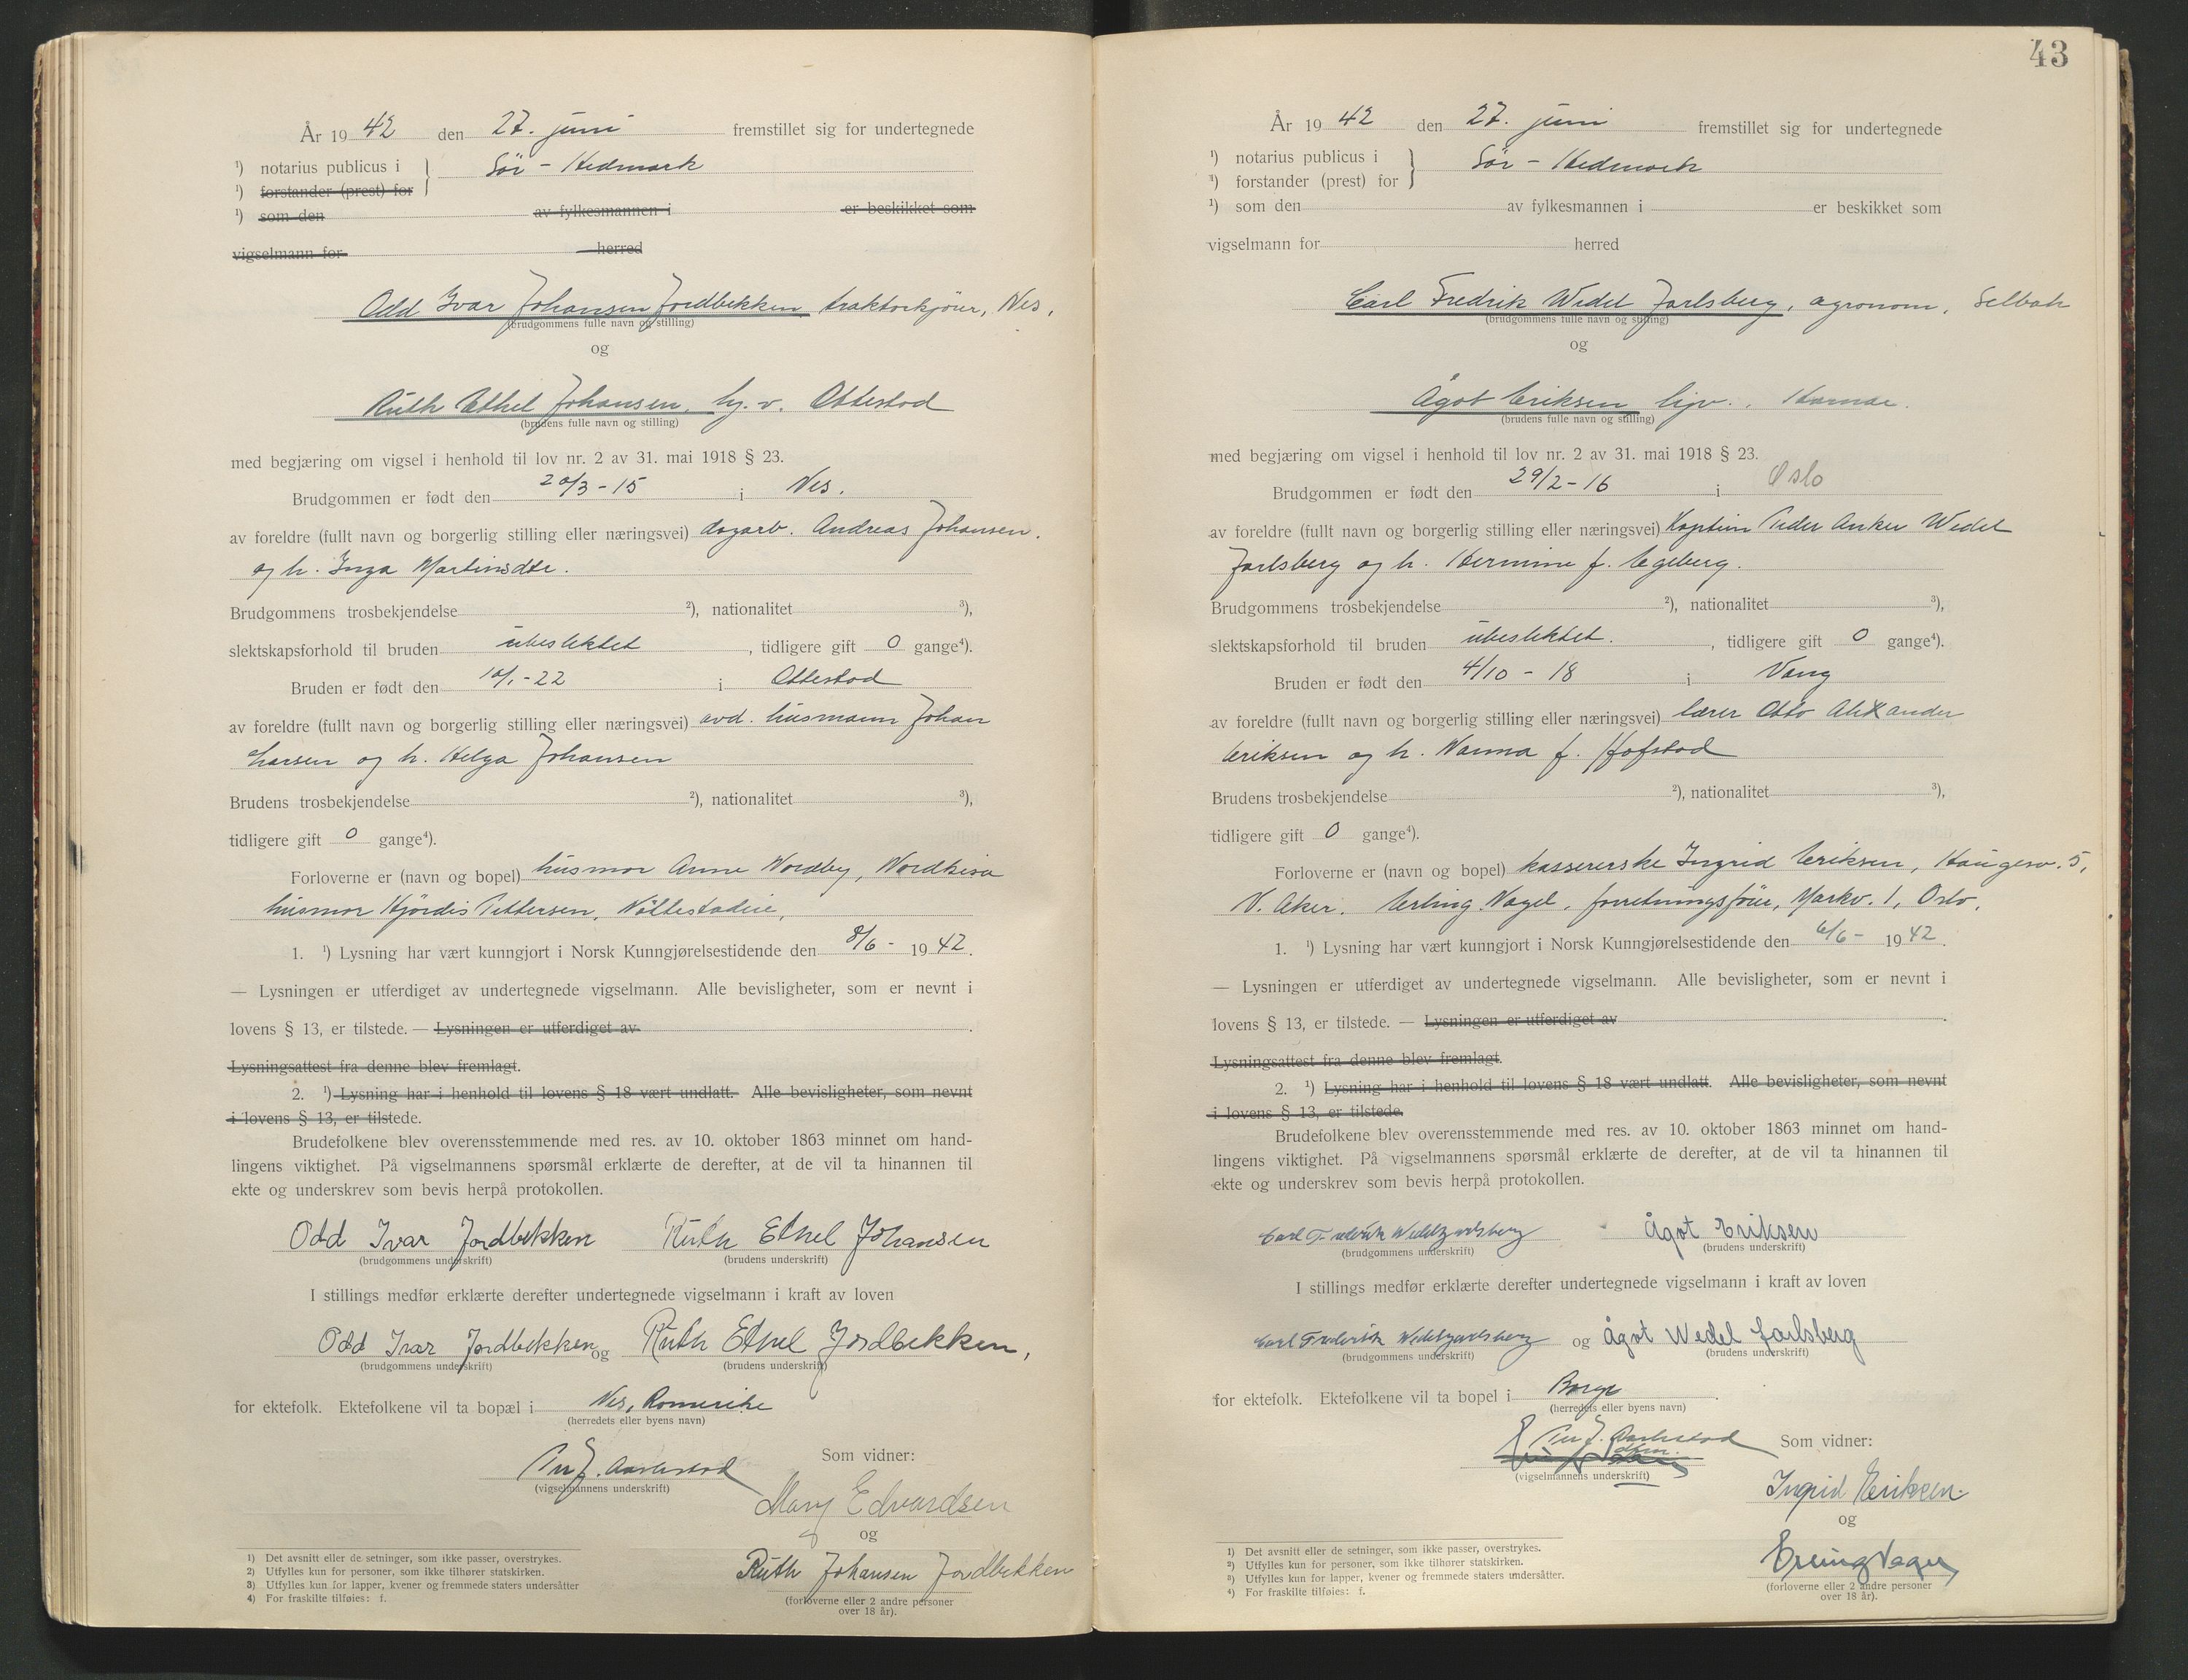 År 19 42 den 27. juni fremstillet sig for undertegnede
¹) notarius publicus i } Sør - Hedmark
¹) forstander (prest) for
¹) som den av fylkesmannen i er beskikket som
vigselmann for herred
Odd Ivar Johansen Jordbekken traktorkjører, Nes,
(brudgommens fulle navn og stilling)
og
Ruth Ethel Johansen, hj. v. Ottestad
(brudens fulle navn og stilling)
med begjæring om vigsel i henhold til lov nr. 2 av 31. mai 1918 § 23.
Brudgommen er født den 20/3 - 15 i Nes.
av foreldre (fullt navn og borgerlig stilling eller næringsvei) dagarb. Andreas Johansen.
og h. Inga Martinsdtr.
Brudgommens trosbekjendelse ²), nationalitet ³),
slektskapsforhold til bruden ubeslektet, tidligere gift 0 gange⁴).
Bruden er født den - 22 i Ottestad
av foreldre (fullt navn og borgerlig stilling eller næringsvei) avd. husmann Johan
Larsen og h. Helga Johansen
Brudens trosbekjendelse ²), nationalitet ³),
tidligere gift 0 gange⁴).
Forloverne er (navn og bopel) husmor Anne Nordby, Nordkisa
husmor Hjørdis Pettersen,
1. ¹) Lysning har vært kunngjort i Norsk Kunngjørelsestidende den 8/6 - 19 42.
— Lysningen er utferdiget av undertegnede vigselmann. Alle bevisligheter, som er nevnt i
lovens § 13, er tilstede. — Lysningen er utferdiget av .
Lysningsattest fra denne blev fremlagt.
2. ¹) Lysning har i henhold til lovens § 18 vært undlatt. Alle bevisligheter, som nevnt
i lovens § 13, er tilstede.
Brudefolkene blev overensstemmende med res. av 10. oktober 1863 minnet om hand-
lingens viktighet. På vigselmannens spørsmål erklærte de derefter, at de vil ta hinannen til
ekte og underskrev som bevis herpå protokollen.
Odd Ivar Jordbekken Ruth Ethel Johansen
(brudgommens underskrift) (brudens underskrift)
I stillings medfør erklærte derefter undertegnede vigselmann i kraft av loven
Odd Ivar Jordbekken og Ruth Ethel Jordbekken,
(brudgommens underskrift) (brudens underskrift)
for ektefolk. Ektefolkene vil ta bopæl i Nes, Romerike
(herredets eller byens navn)
Som vidner:
Per J. Aarlestad
(vigselmannens underskrift)
Mary Edvardsen
og
Ruth Johansen Jordbekken
(forloverne eller 2 andre personer
over 18 år).
1) Det avsnitt eller de setninger, som ikke passer, overstrykes.
2) Utfylles kun for personer, som ikke tilhører statskirken.
3) Utfylles kun for lapper, kvener og fremmede staters undersåtter
4) For fraskilte tilføies: f.
43
År 19 42 den 27. juni fremstillet sig for undertegnede
¹) notarius publicus i } Sør - Hedmark
¹) forstander (prest) for
¹) som den av fylkesmannen i er beskikket som
vigselmann for herred
Carl Fredrik Wedel Jarlsberg, agronom, Selbak
(brudgommens fulle navn og stilling)
og
Ågot Eriksen hjv., Hamar.
(brudens fulle navn og stilling)
med begjæring om vigsel i henhold til lov nr. 2 av 31. mai 1918 § 23.
Brudgommen er født den 29/2 - 16 i Oslo
av foreldre (fullt navn og borgerlig stilling eller næringsvei) Kaptein Peder Anker Wedel
Jarlsberg og h. Hermine f. Egeberg.
Brudgommens trosbekjendelse ²), nationalitet ³),
slektskapsforhold til bruden ubeslektet., tidligere gift 0 gange⁴).
Bruden er født den 4/10 - 18 i Vang
av foreldre (fullt navn og borgerlig stilling eller næringsvei) lærer Otto Alexander
Eriksen og h. Nanna f. Hofstad
Brudens trosbekjendelse ²), nationalitet ³),
tidligere gift 0 gange⁴).
Forloverne er (navn og bopel) kassererske Ingrid Eriksen, Haugerv. 5,
V. Aker. Erling Nagel, forretningsfører, Markv. 1, Oslo.
1. ¹) Lysning har vært kunngjort i Norsk Kunngjørelsestidende den 6/6 - 19 42.
— Lysningen er utferdiget av undertegnede vigselmann. Alle bevisligheter, som er nevnt i
lovens § 13, er tilstede. — Lysningen er utferdiget av .
Lysningsattest fra denne blev fremlagt.
2. ¹) Lysning har i henhold til lovens § 18 vært undlatt. Alle bevisligheter, som nevnt
i lovens § 13, er tilstede.
Brudefolkene blev overensstemmende med res. av 10. oktober 1863 minnet om hand-
lingens viktighet. På vigselmannens spørsmål erklærte de derefter, at de vil ta hinannen til
ekte og underskrev som bevis herpå protokollen.
Carl Frederik Wedel Jarlsberg Ågot Eriksen
(brudgommens underskrift) (brudens underskrift)
I stillings medfør erklærte derefter undertegnede vigselmann i kraft av loven
Carl Frederik Wedel Jarlsberg og Ågot Wedel Jarlsberg
(brudgommens underskrift) (brudens underskrift)
for ektefolk. Ektefolkene vil ta bopel i Borge .
(herredets eller byens navn)
Per J. Aarlestad
Som vidner:
(vigselmannens underskrift)
Ingrid Eriksen.
og
Erling Nagel
(forloverne eller 2 andre personer
over 18 år).
¹) Det avsnitt eller de setninger, som ikke passer, overstrykes.
²) Utfylles kun for personer, som ikke tilhører statskirken.
³) Utfylles kun for lapper, kvener og fremmede staters undersåtter.
⁴) For fraskilte tilføies: f.